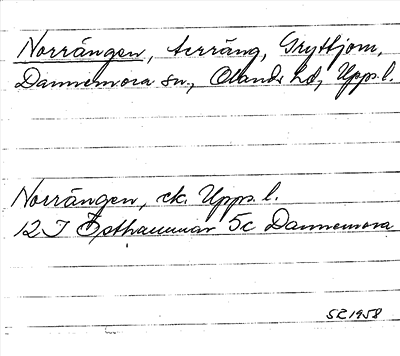 Norrängen, terräng, Gryttjom,
Dannemora sn, Olands hd, Upps.l.
Norrängen, ek. Upps.l.
12I Östhammar 5c Dannemora
SR 1958